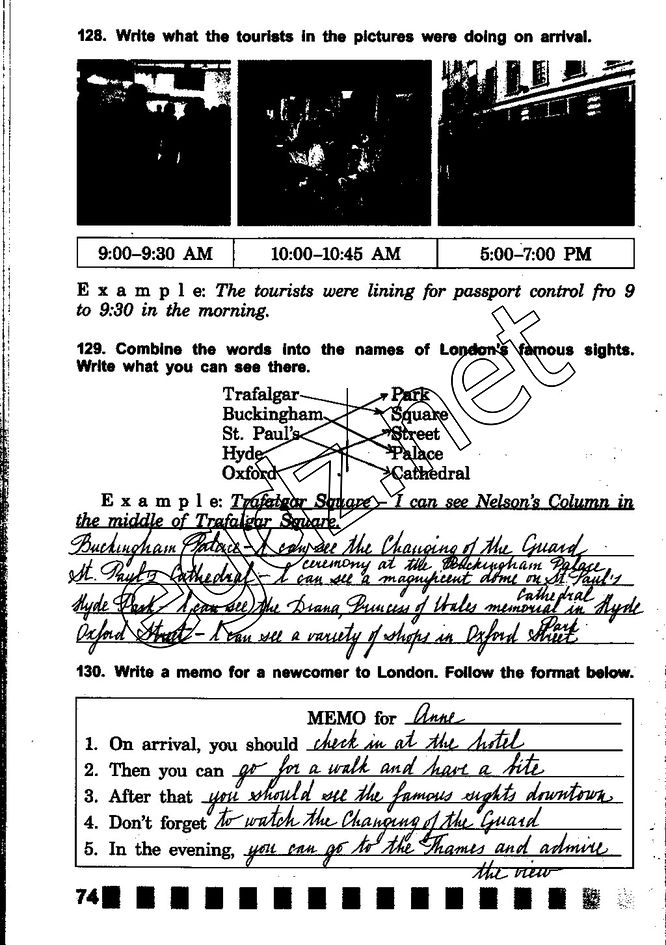 128. Write what the tourists in the pictures were doing on arrival.
9:00–9:30 AM 10:00–10:45 AM 5:00–7:00 PM
E x a m p l e: The tourists were lining for passport control fro 9
to 9:30 in the morning.
129. Combine the words into the names of London's famous sights.
Write what you can see there.
Trafalgar Park
Buckingham Square
St. Paul's Street
Hyde Palace
Oxford Cathedral
E x a m p l e: Trafalgar Square – I can see Nelson's Column in
the middle of Trafalgar Square.
Buckingham Palace – I can see the Changing of the Guard
ceremony at the Buckingham Palace
St. Paul's Cathedral – I can see a magnificent dome on St. Paul's
Cathedral
Hyde Park – I can see the Diana, Princess of Wales memorial in Hyde
Park
Oxford Street – I can see a variety of shops in Oxford Street
130. Write a memo for a newcomer to London. Follow the format below.
MEMO for Anne
1. On arrival, you should check in at the hotel
2. Then you can go for a walk and have a bite
3. After that you should see the famous sights downtown
4. Don't forget to watch the Changing of the Guard
5. In the evening, you can go to the Thames and admire
the view
74
egdz.net